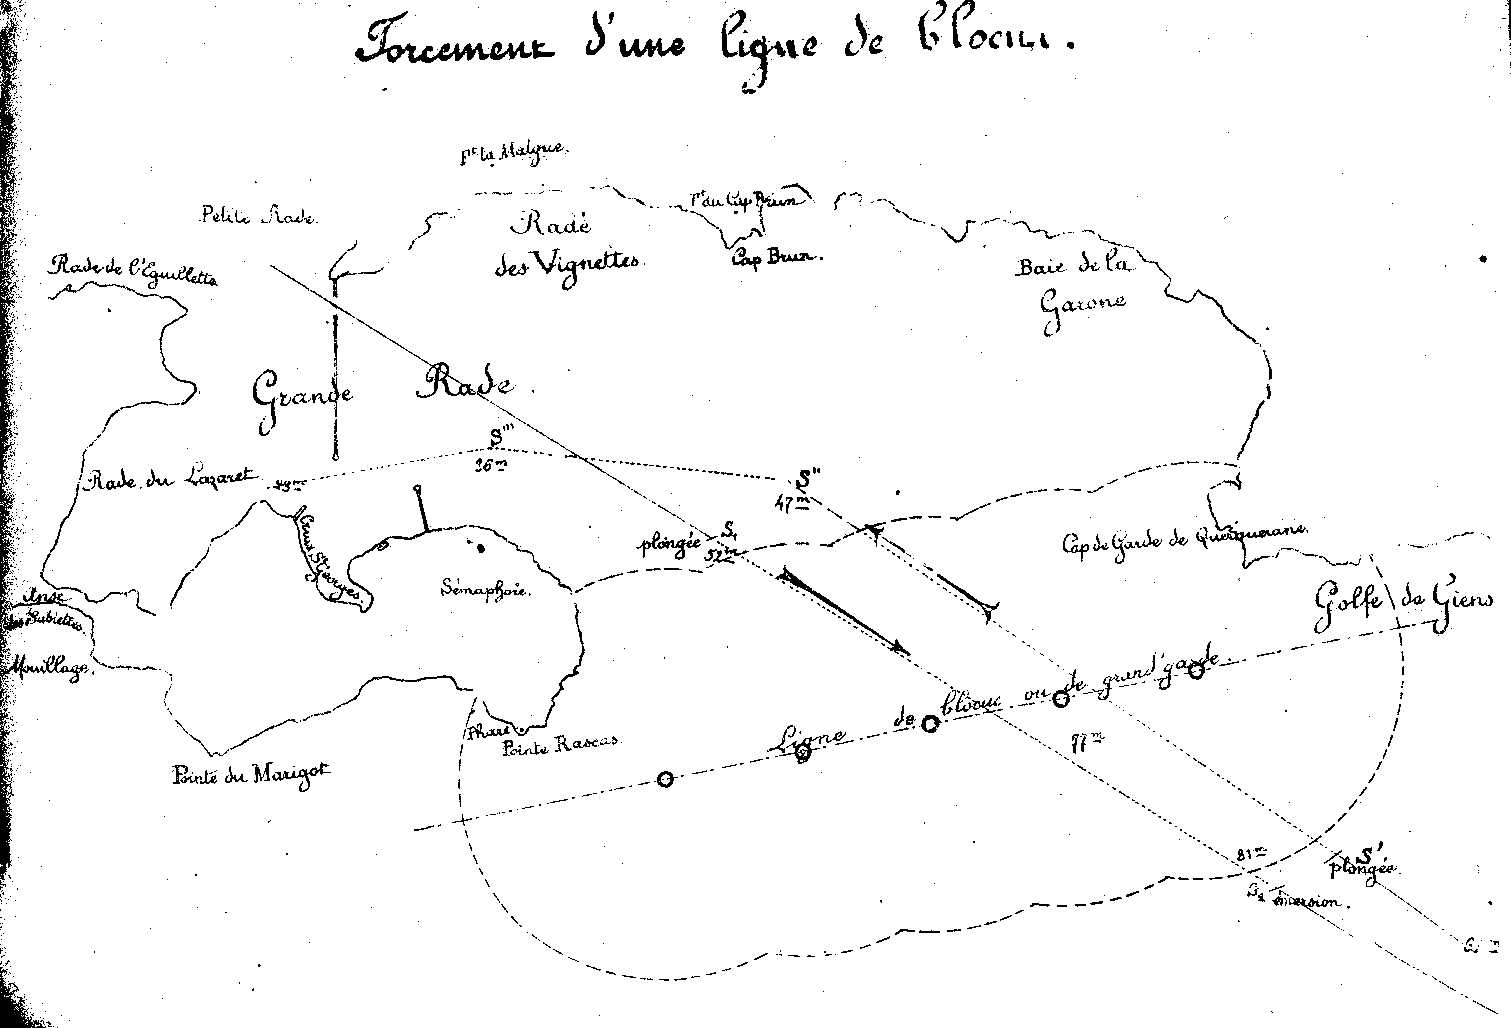 Forcement d'une ligne de blocus.
Ft la Malgue.
Petite Rade.
Rade
des Vignettes.
Ft du Cap Brun
Cap Brun.
Rade de l'Eguillette
Baie de la
Garone
Grande Rade.
S'''
26m
Rade du Lazaret
S''
47m
plongée
S1
52m
Cap de Garde de Querqueranne.
Creux St Georges
Sémaphore.
Anse
des Sablettes.
Mouillage.
Golfe de Giens
Ligne de blocus ou de grand'garde.
Phare
Pointe Rascas
Pointe du Marigot
77m
81m
S'
plongée
S2 émersion.